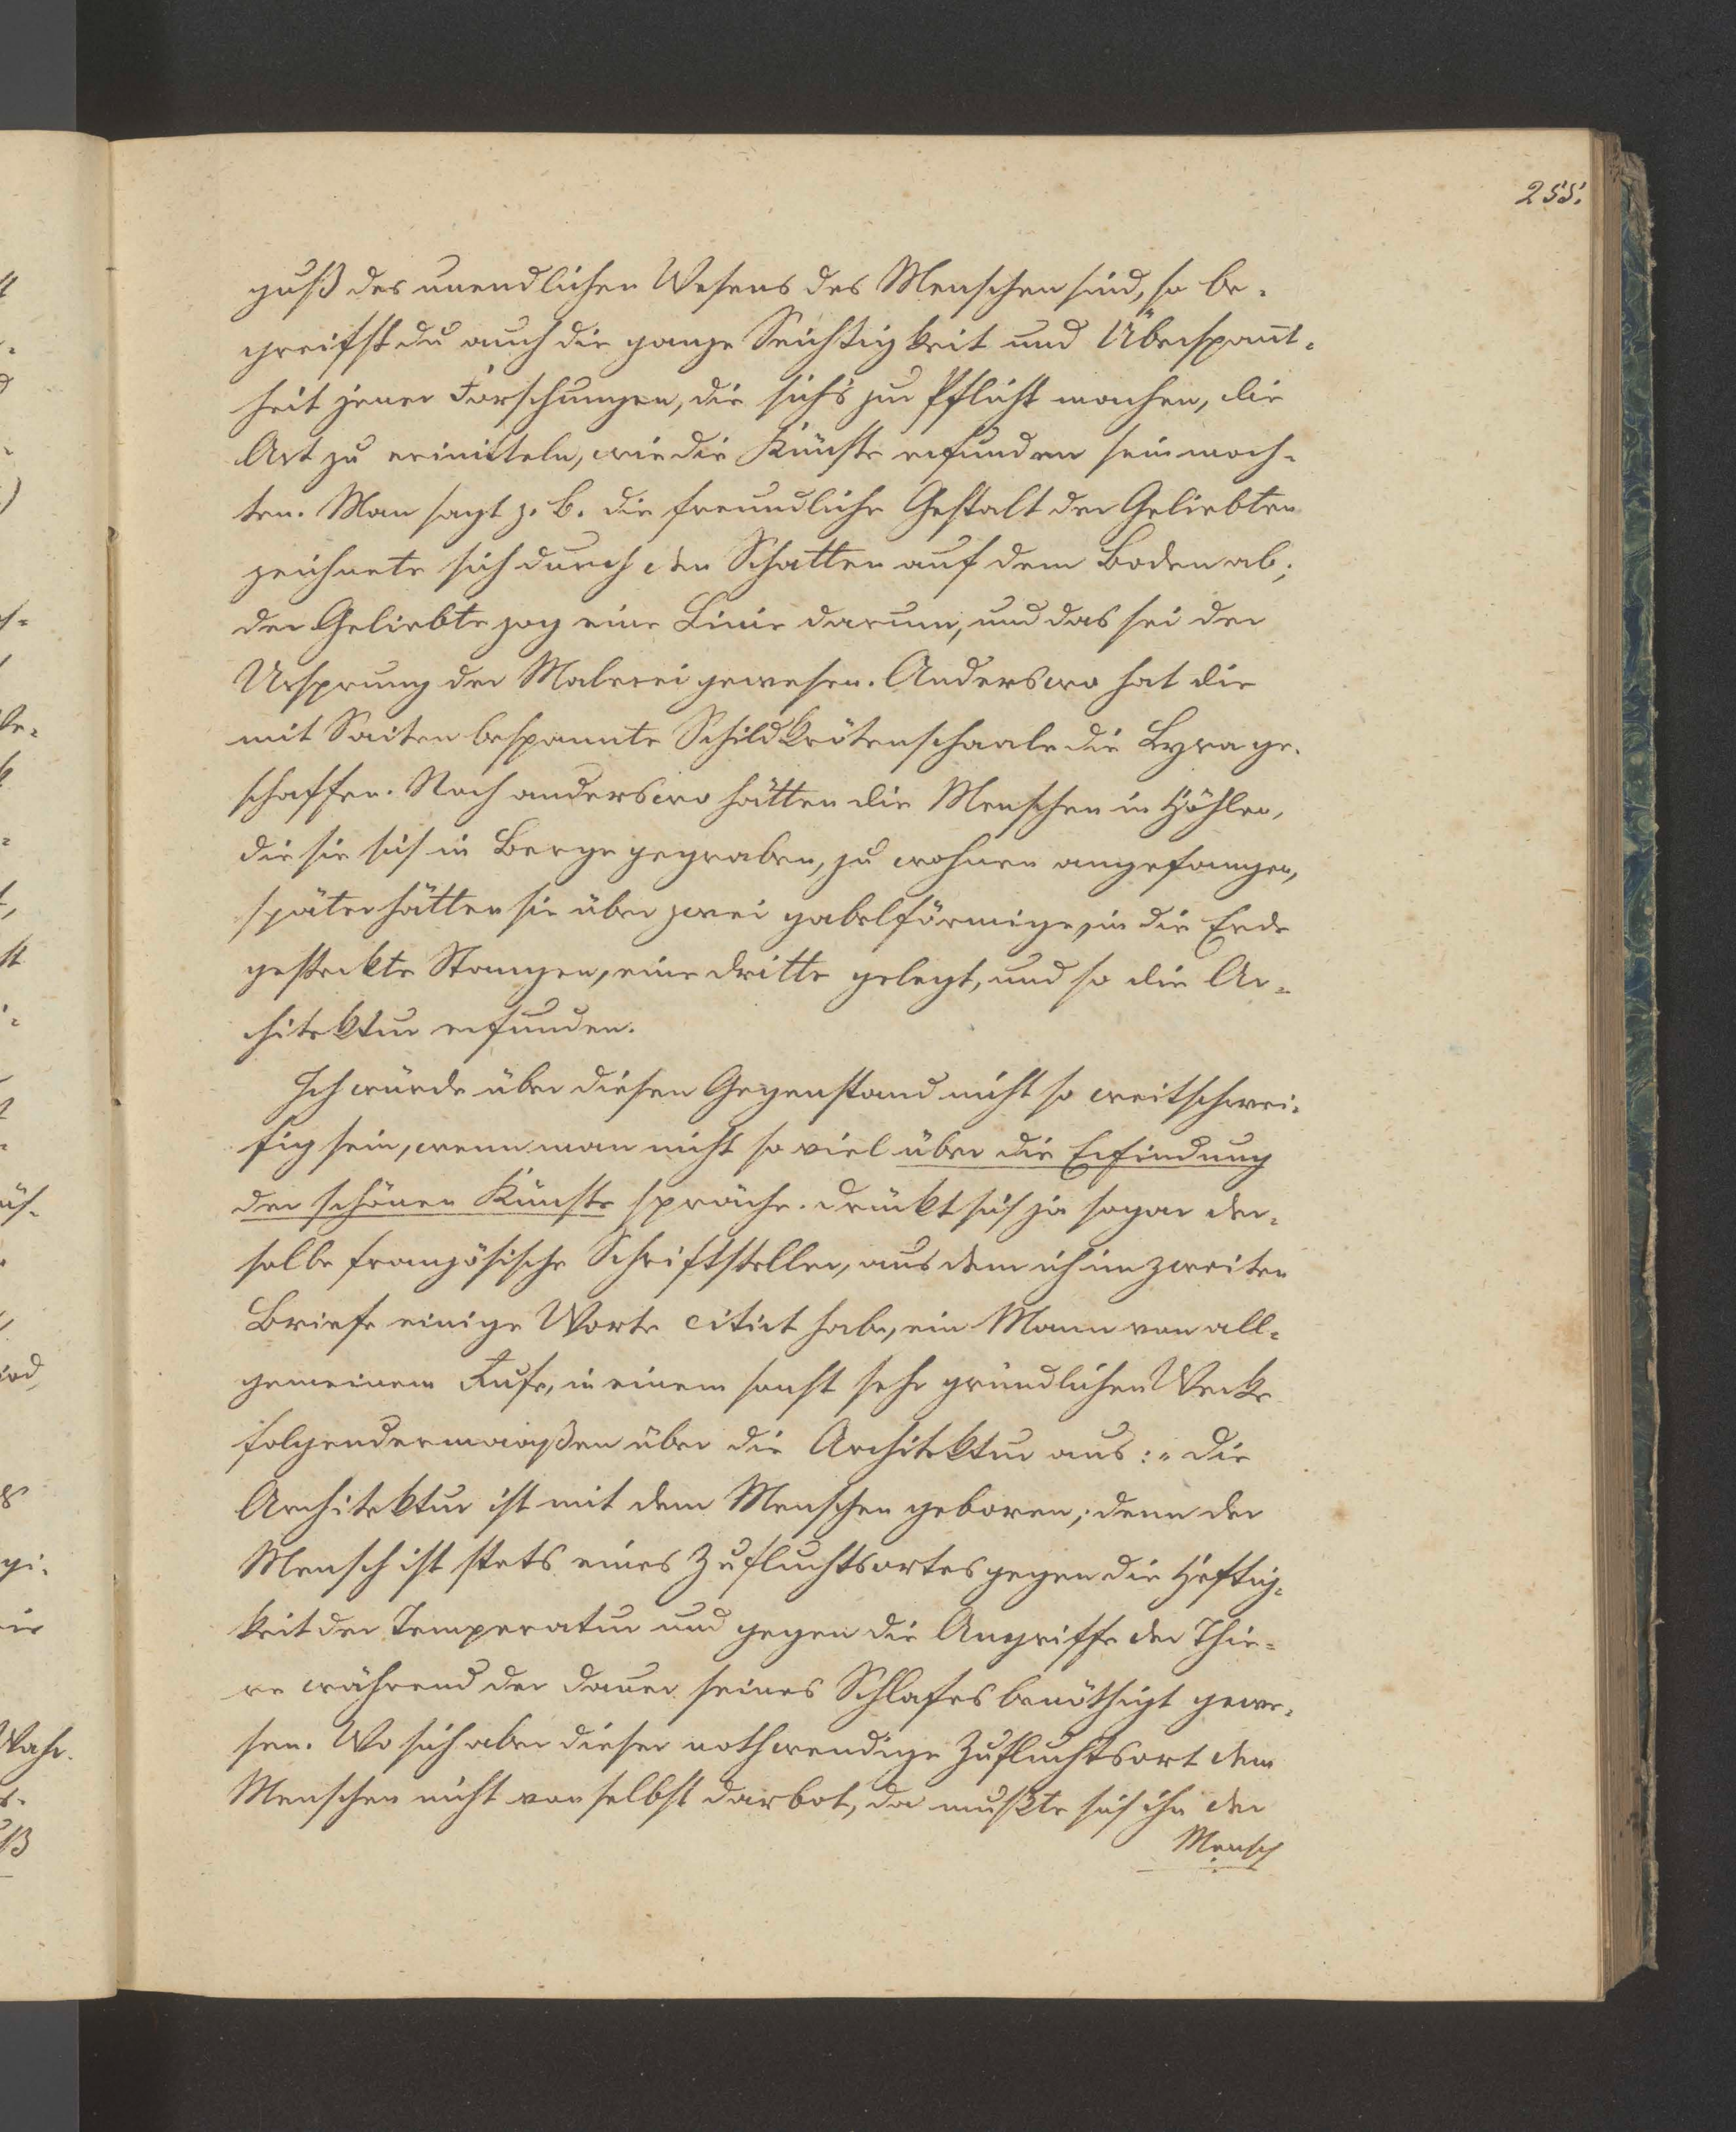 255.
guß des unendlichen Wesens des Menschen sind, so be-
greifst du auch die ganze Seichtigkeit und Überspan̅t-
heit jener Forschungen, die sich's zur Pflicht machen, die
Art zu ermitteln, wie die Künste erfunden sein moch-
ten. Man sagt z. B. die freundliche Gestalt der Geliebten
zeichnete sich durch den Schatten auf dem Boden ab;
der Geliebte zog eine Linie darum, und das sei der
Ursprung der Malerei gewesen. Anderswo hat die
mit Saiten bespannte Schildkrötenschaale die Lyra ge-
schaffen. Noch anderswo hätten die Menschen in Höhlen,
die sie sich in Berge gegraben, zu wohnen angefangen,
später hätten sie über zwei gabelförmige, in die Erde
gesteckte Stangen, eine dritte gelegt, und so die Ar-
chitektur erfunden.
Ich würde über diesen Gegenstand nicht so weitschwei-
fig sein, wenn man nicht so viel über die Erfindung
der schönen Künste spräche. Drückt sich ja sogar der-
selbe französische Schriftsteller, aus dem ich im zweiten
Briefe einige Worte citirt habe, ein Mann von all-
gemeinem Rufe, in einem sonst sehr gründlichen Werke
folgendermaaßen über die Architektur aus: „Die
Architektur ist mit dem Menschen geboren; denn der
Mensch ist stets eines Zufluchtsortes gegen die Heftig-
keit der Temperatur und gegen die Angriffe der Thie-
re während der Dauer seines Schlafes benöthigt gewe-
sen. Wo sich aber dieser nothwendige Zufluchtsort dem
Menschen nicht von selbst darbot, da mußte sich ihn der
Mensch